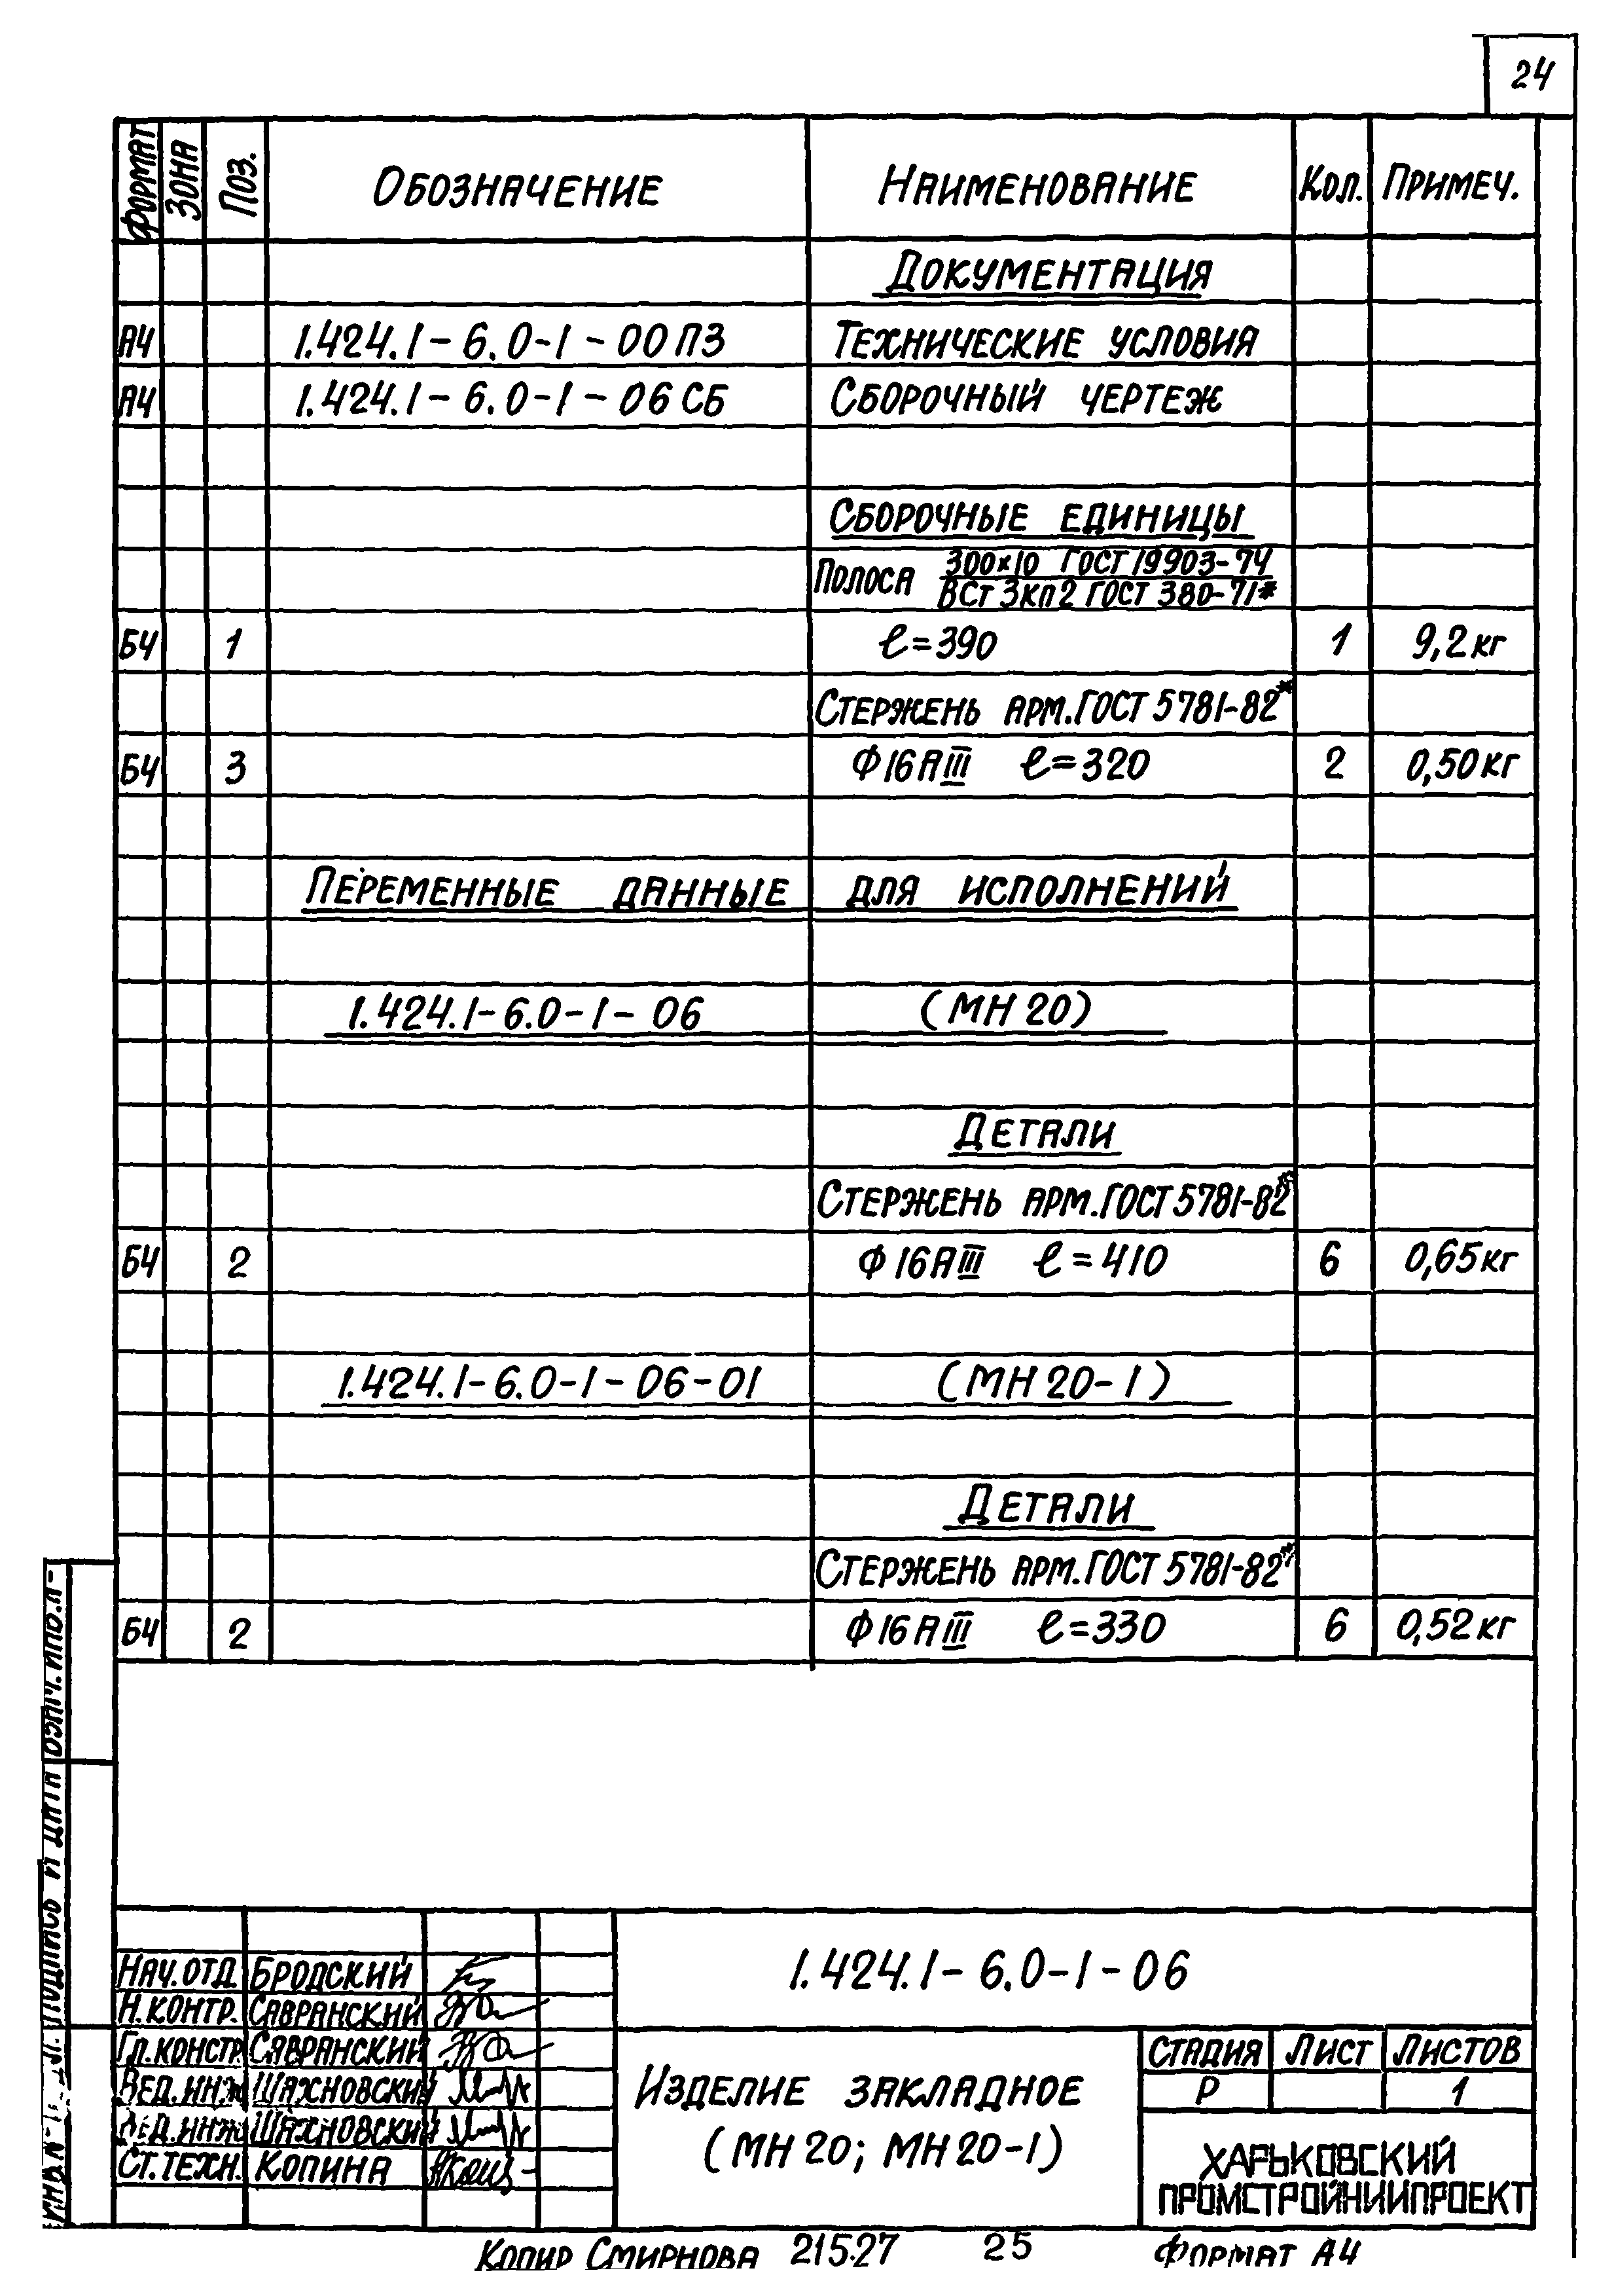 24
Формат Зона Поз. Обозначение Наименование Кол. Примеч.
Документация
А4 1.424.1-6.0-1-00ПЗ Технические условия
А4 1.424.1-6.0-1-06СБ Сборочный чертеж
Сборочные единицы
Полоса 300×10 ГОСТ 19903-74
ВСт3кп2 ГОСТ 380-71*
Б4 1 ℓ=390 1 9,2кг
Стержень арм. ГОСТ 5781-82*
Б4 3 Ф16АIII ℓ=320 2 0,50кг
Переменные данные для исполнений
1.424.1-6.0-1-06 (МН20)
Детали
Стержень арм. ГОСТ 5781-82*
Б4 2 Ф16АIII ℓ=410 6 0,65кг
1.424.1-6.0-1-06-01 (МН20-1)
Детали
Стержень арм. ГОСТ 5781-82*
Б4 2 Ф16АIII ℓ=330 6 0,52кг
1.424.1-6.0-1-06
Нач.отд. Бродский
Н.контр. Савранский
Гл.констр. Савранский
Вед.инж. Шахновский
Вед.инж. Шахновский
Ст.техн. Копина
Изделие закладное
(МН20; МН20-1)
Стадия Лист Листов
Р 1
Харьковский
Промстройниипроект
Копир Смирнова 21527 25 Формат А4